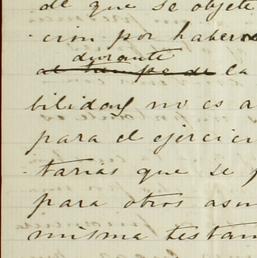 de que se objete
cion por haber
durante
al tiempo de la
no es a
para el ejercici
tarias que se p
para otros asu
misma testam